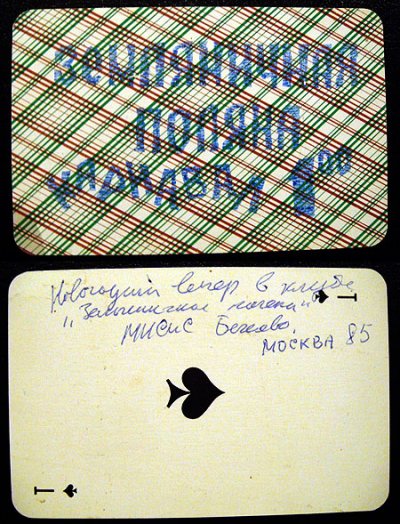 ЗЕМЛЯНИЧНАЯ
ПОЛЯНА
КАРНАВАЛ 1 00
Новогодний вечер в клубе
"Земляничная поляна"
МИСиС Беляево,
МОСКВА 85
Т
Т